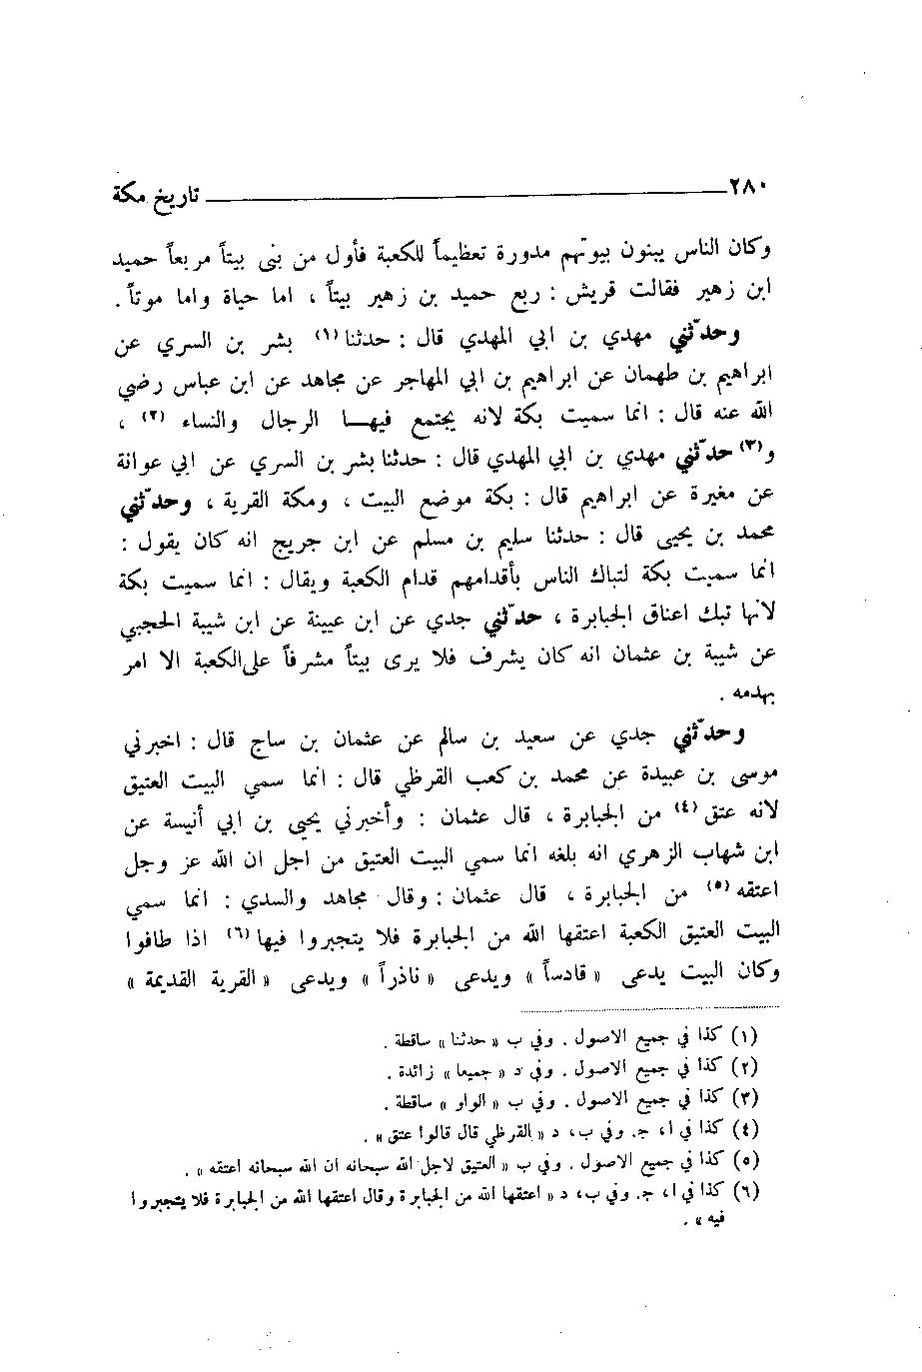 ٢٨٠ تاريخ مكة
وكان الناس يبنون بيوتهم مدورة تعظيماً للكعبة فأول من بنى بيتاً مربعاً حميد
ابن زهير فقالت قريش : ربع حميد بن زهير بيتاً ، اما حياة واما موتاً .
وحدّثني مهدي بن ابي المهدي قال : حدثنا (١) بشر بن السري عن
ابراهيم بن طهمان عن ابراهيم بن ابي المهاجر عن مجاهد عن ابن عباس رضي
الله عنه قال : انما سميت بكة لانه يجتمع فيهـا الرجال والنساء (٢) ،
و(٣) حدّثني مهدي بن ابي المهدي قال : حدثنا بشر بن السري عن ابي عوانة
عن مغيرة عن ابراهيم قال : بكة موضع البيت ، ومكة القرية ، وحدّثني
محمد بن يحيى قال : حدثنا سليم بن مسلم عن ابن جريج انه كان يقول :
انما سميت بكة لتباك الناس بأقدامهم قدام الكعبة ويقال : انما سميت بكة
لانها تبك اعناق الجبابرة ، حدّثني جدي عن ابن عيينة عن ابن شيبة الحجبي
عن شيبة بن عثمان انه كان يشرف فلا يرى بيتاً مشرفاً على الكعبة الا امر
بهدمه .
وحدّثني جدي عن سعيد بن سالم عن عثمان بن ساج قال : اخبرني
موسى بن عبيدة عن محمد بن كعب القرظي قال : انما سمي البيت العتيق
لانه عتق (٤) من الجبابرة ، قال عثمان : وأخبرني يحيى بن ابي أنيسة عن
ابن شهاب الزهري انه بلغه انما سمي البيت العتيق من اجل ان الله عز وجل
اعتقه (٥) من الجبابرة ، قال عثمان : وقال مجاهد والسدي : انما سمي
البيت العتيق الكعبة اعتقها الله من الجبابرة فلا يتجبروا فيها (٦) اذا طافوا
وكان البيت يدعى « قادساً » ويدعى « ناذراً » ويدعى « القرية القديمة »
(١) كذا في جميع الاصول . وفي ب « حدثنا » ساقطة .
(٢) كذا في جميع الاصول . وفي د « جميعا » زائدة .
(٣) كذا في جميع الاصول . وفي ب « الواو » ساقطة .
(٤) كذا في ا، ج. وفي ب، د « القرظي قال قالوا عتق » .
(٥) كذا في جميع الاصول . وفي ب « العتيق لاجل الله سبحانه ان الله سبحانه اعتقه » .
(٦) كذا في ا، ج. وفي ب، د « اعتقها الله من الجبابرة وقال اعتقها الله من الجبابرة فلا يتجبروا
فيه » .